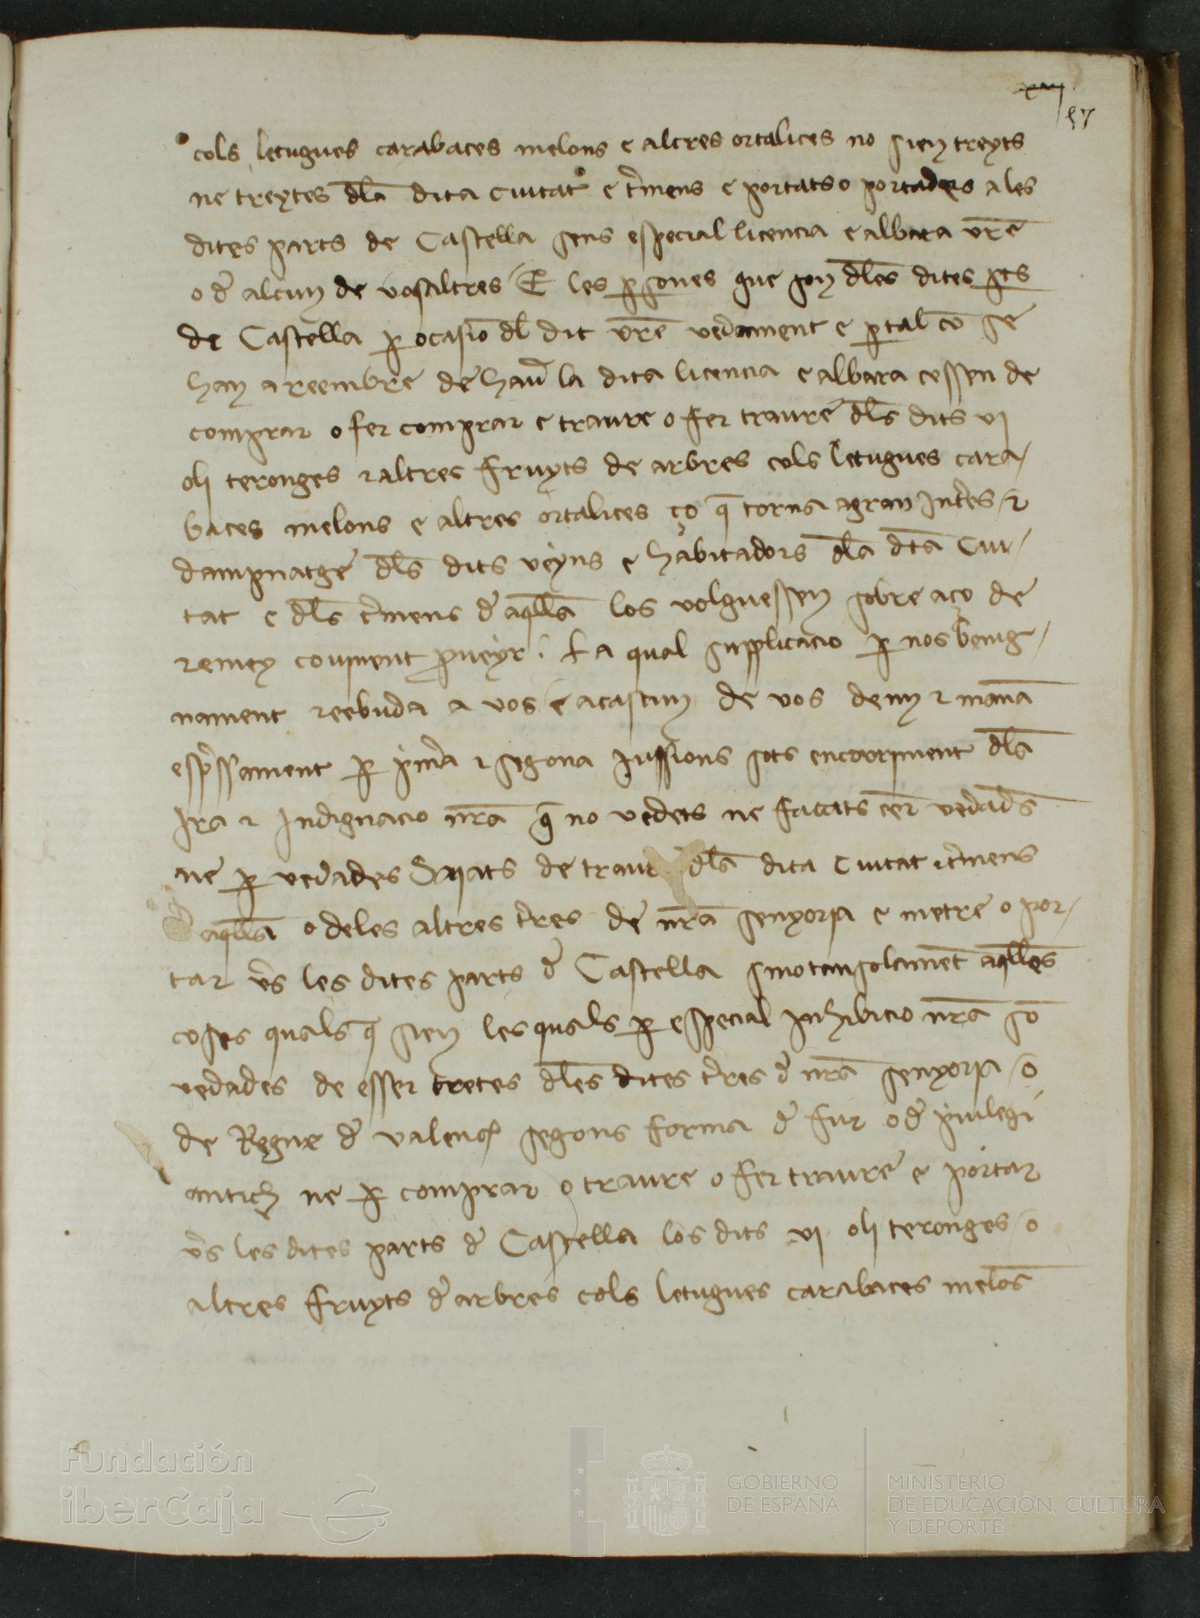 57
cols letugues carabaces melons e altres ortalices no sien treyts
ne treytes dla dita Ciutat e tmens e portats o portades a les
dites parts de Castella sens especial licencia e albara vre
o d alcun de vosaltres E les psones que son dles dites pts
de Castella p ocasio dl dit vre vedament e p tal co se
han a reembre de hau la dita licencia e albara cessen de
comprar o fer comprar e traure o fer traure dls dits vi
oli teronges z altres fruyts de arbres cols letugues cara/
baces melons e altres ortalices ço q torna a gran Intes / z
dampnatge dls dits veyns e habitadors dla dta Ciu/
tat e dls tmens d aqlla los volguessem sobre aço de
remey conuinent pueyr . La qual supplicacio p nos benig/
nament reebuda a vos e a cascun de vos dem z mana
espssament p pma z segona Jussions sots encorriment dla
Ira z Indignacio nra q no vedets ne façats cer vedads
ne p vedades haiats de traur dla dita Ciutat z tmens
d aqlla o deles altres tres de nra senyoria e metre o por/
tar vs les dites parts d Castella sino tansolamet aqlles
coses quals q sien les quals p especial inhibicio nra so
vedades de esser tretes dles dites tres d nra senyoria / o
de Regne d valenc segons forma d fur o d priuilegi
antich ne p comprar o traure o fer traure e portar
vs les dites parts d Castella los dits vi oli teronges / o
altres fruyts d arbres cols letugues carabaces melos
Fundación
iberCaja
GOBIERNO
DE ESPAÑA
MINISTERIO
DE EDUCACIÓN, CULTURA
Y DEPORTE